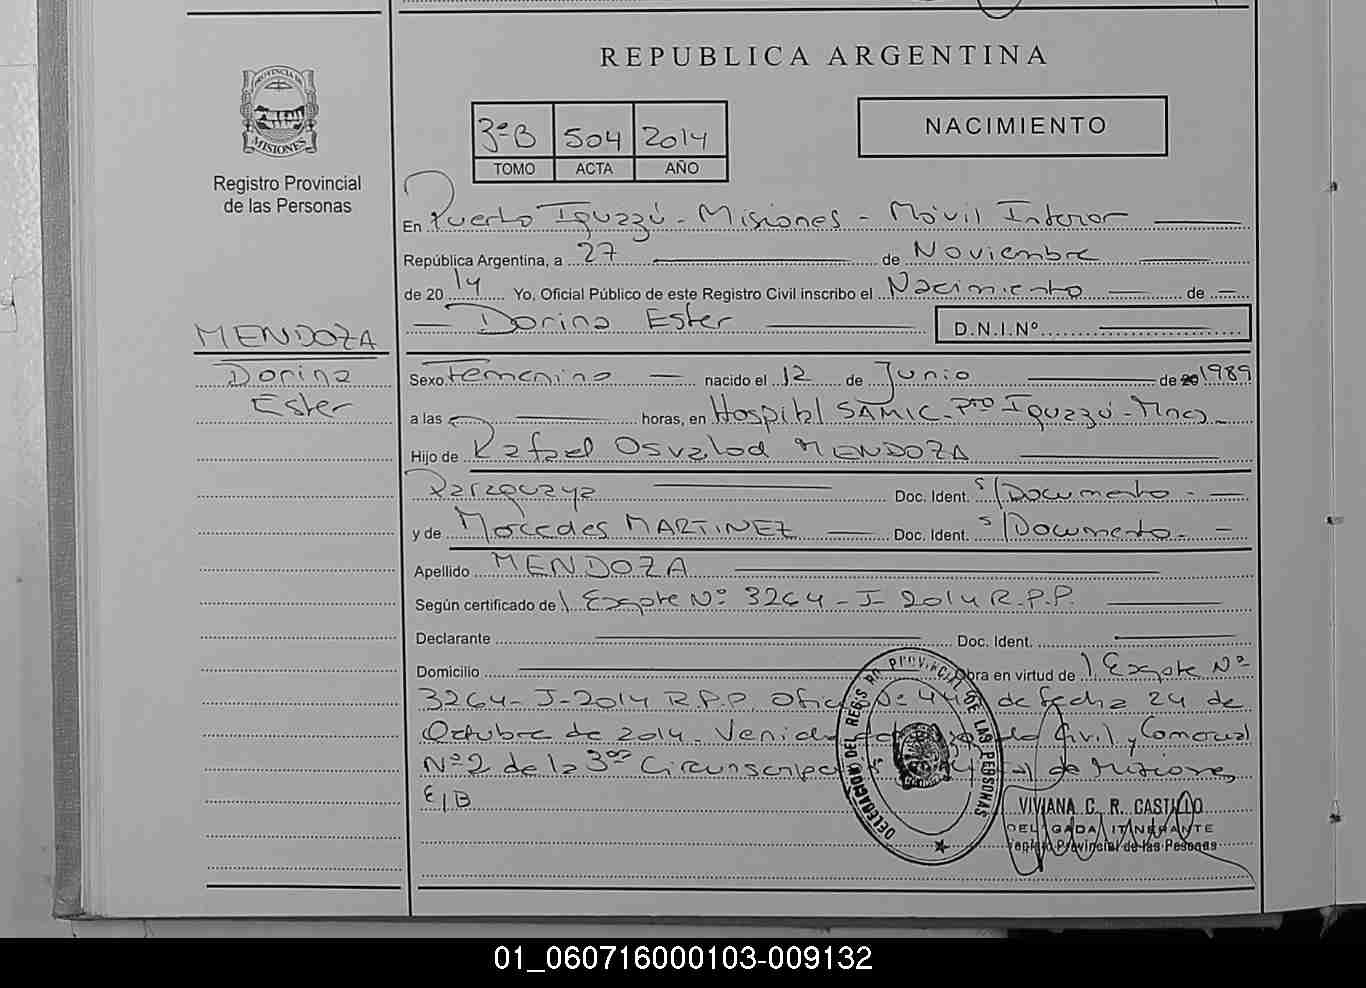 REPUBLICA ARGENTINA
PROVINCIA DE
MISIONES
Registro Provincial
de las Personas
3ºB 504 2014
TOMO ACTA AÑO
NACIMIENTO
En Puerto Iguazú - Misiones - Móvil Interior
República Argentina, a 27 de Noviembre
de 2014 Yo, Oficial Público de este Registro Civil inscribo el Nacimiento de
Dorina Ester D.N.I.Nº
MENDOZA
Dorina
Ester
Sexo Femenino nacido el 12 de Junio de 20 1989
a las horas, en Hospital SAMIC - Pto Iguazú - Mnes
Hijo de Rafael Osvalod MENDOZA
Paraguaya Doc. Ident. S/Documento -
y de Mercedes MARTINEZ Doc. Ident. S/Documento -
Apellido MENDOZA
Según certificado de Expte Nº 3264 - J - 2014 R.P.P.
Declarante Doc. Ident.
Domicilio Obra en virtud de Expte Nº
3264 - J - 2014 R.P.P. Nº de fecha 24 de
Octubre de 2014. Civil y Comercial
Nº2 de la 3ra de Misiones
E/B
DELEGACION DEL REGISTRO PROVINCIAL DE LAS PERSONAS
VIVIANA C. R. CASTILLO
DELEGADA ITINERANTE
Provincial de las Pesonas
01_060716000103-009132